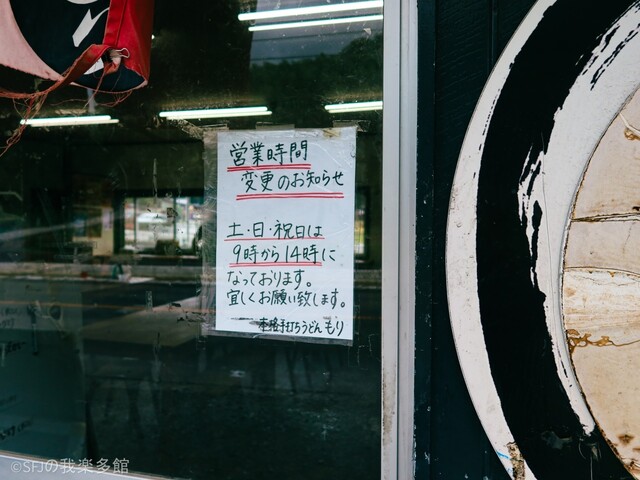 営業時間
変更のお知らせ
土・日・祝日は
9時から14時に
なっております。
宜しくお願い致します。
本格手打ちうどん もり
©SFJの我楽多館